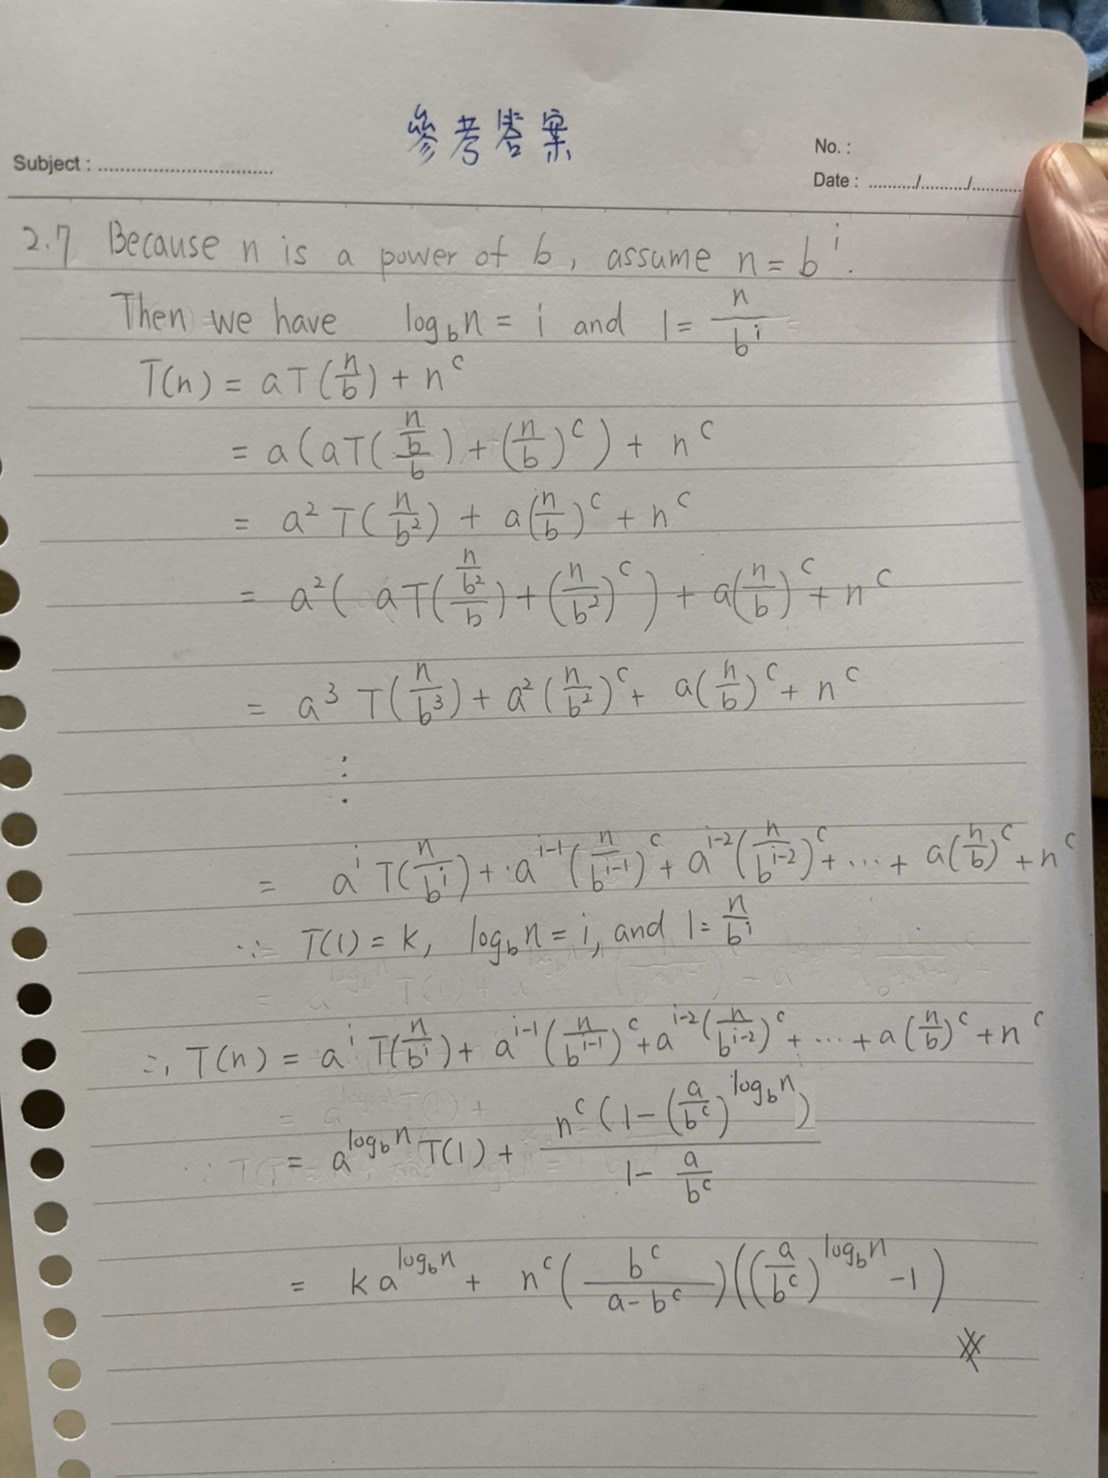 參考答案
Subject : ................................
No. :
Date : ........./........./.........
2.7 Because n is a power of b, assume n = b^i.
Then we have log_b n = i and 1 = n/b^i
T(n) = aT(n/b) + n^c
= a(aT((n/b)/b) + (n/b)^c) + n^c
= a² T(n/b²) + a(n/b)^c + n^c
= a²( aT((n/b²)/b) + (n/b²)^c ) + a(n/b)^c + n^c
= a³ T(n/b³) + a²(n/b²)^c + a(n/b)^c + n^c
⋮
= a^i T(n/b^i) + a^(i-1)(n/b^(i-1))^c + a^(i-2)(n/b^(i-2))^c + ... + a(n/b)^c + n^c
∵ T(1) = k, log_b n = i, and 1 = n/b^i
∴ T(n) = a^i T(n/b^i) + a^(i-1)(n/b^(i-1))^c + a^(i-2)(n/b^(i-2))^c + ... + a(n/b)^c + n^c
= a^(log_b n) T(1) + n^c (1 - (a/b^c)^(log_b n)) / (1 - a/b^c)
= k a^(log_b n) + n^c (b^c/(a - b^c))((a/b^c)^(log_b n) - 1)